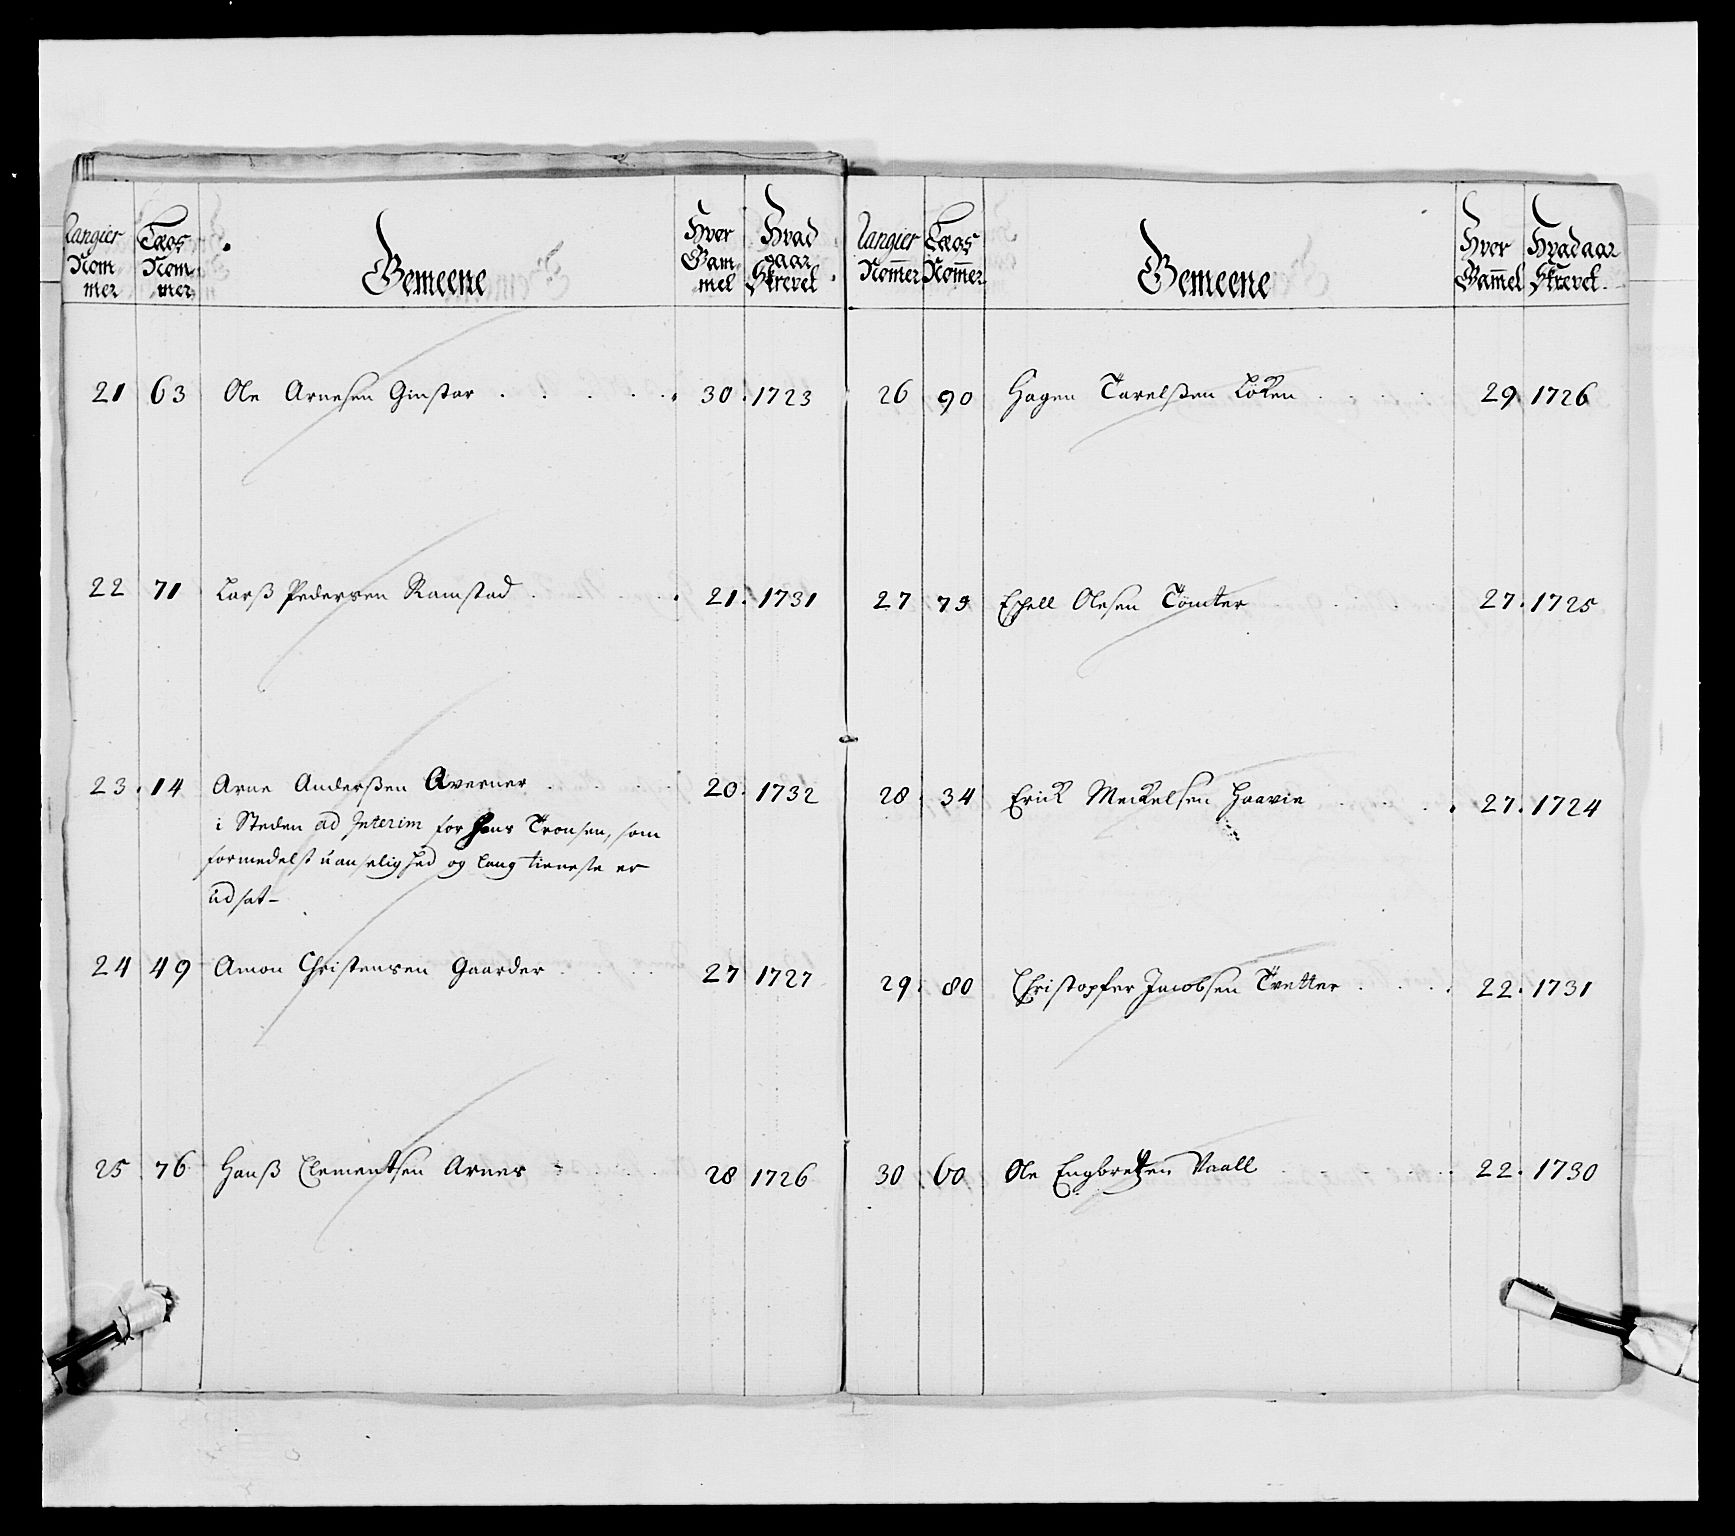 Rangier Nom mer | Læos Nom mer | Gemeene | Hver Gam mel | Hvad aar Skrevet
21 | 63 | Ole Arnesen Ginstar | 30 | 1723
22 | 71 | Larß Pedersen Ramstad | 21 | 1731
23 | 14 | Arne Anderßen Averner | 20 | 1732
i Steden ad Interim for Hans Tronsen, som
formedelst uanselighed og lang tieneste er
udsat
24 | 49 | Amon Christensen Gaarder | 27 | 1727
25 | 76 | Hanß Clementsen Arnes | 28 | 1726
Rangier Nom̄er | Læos Nom̄er | Gemeene | Hver Gam̄el | Hvad aar Skrevet
26 | 90 | Hagen Tarelßen Løken | 29 | 1726
27 | 79 | Eskell Olesen Tomter | 27 | 1725
28 | 34 | Erick Meckelsen Haavie | 27 | 1724
29 | 80 | Christopfer Jacobsen Tvetter | 22 | 1731
30 | 60 | Ole Engbretzen Vaall | 22 | 1730